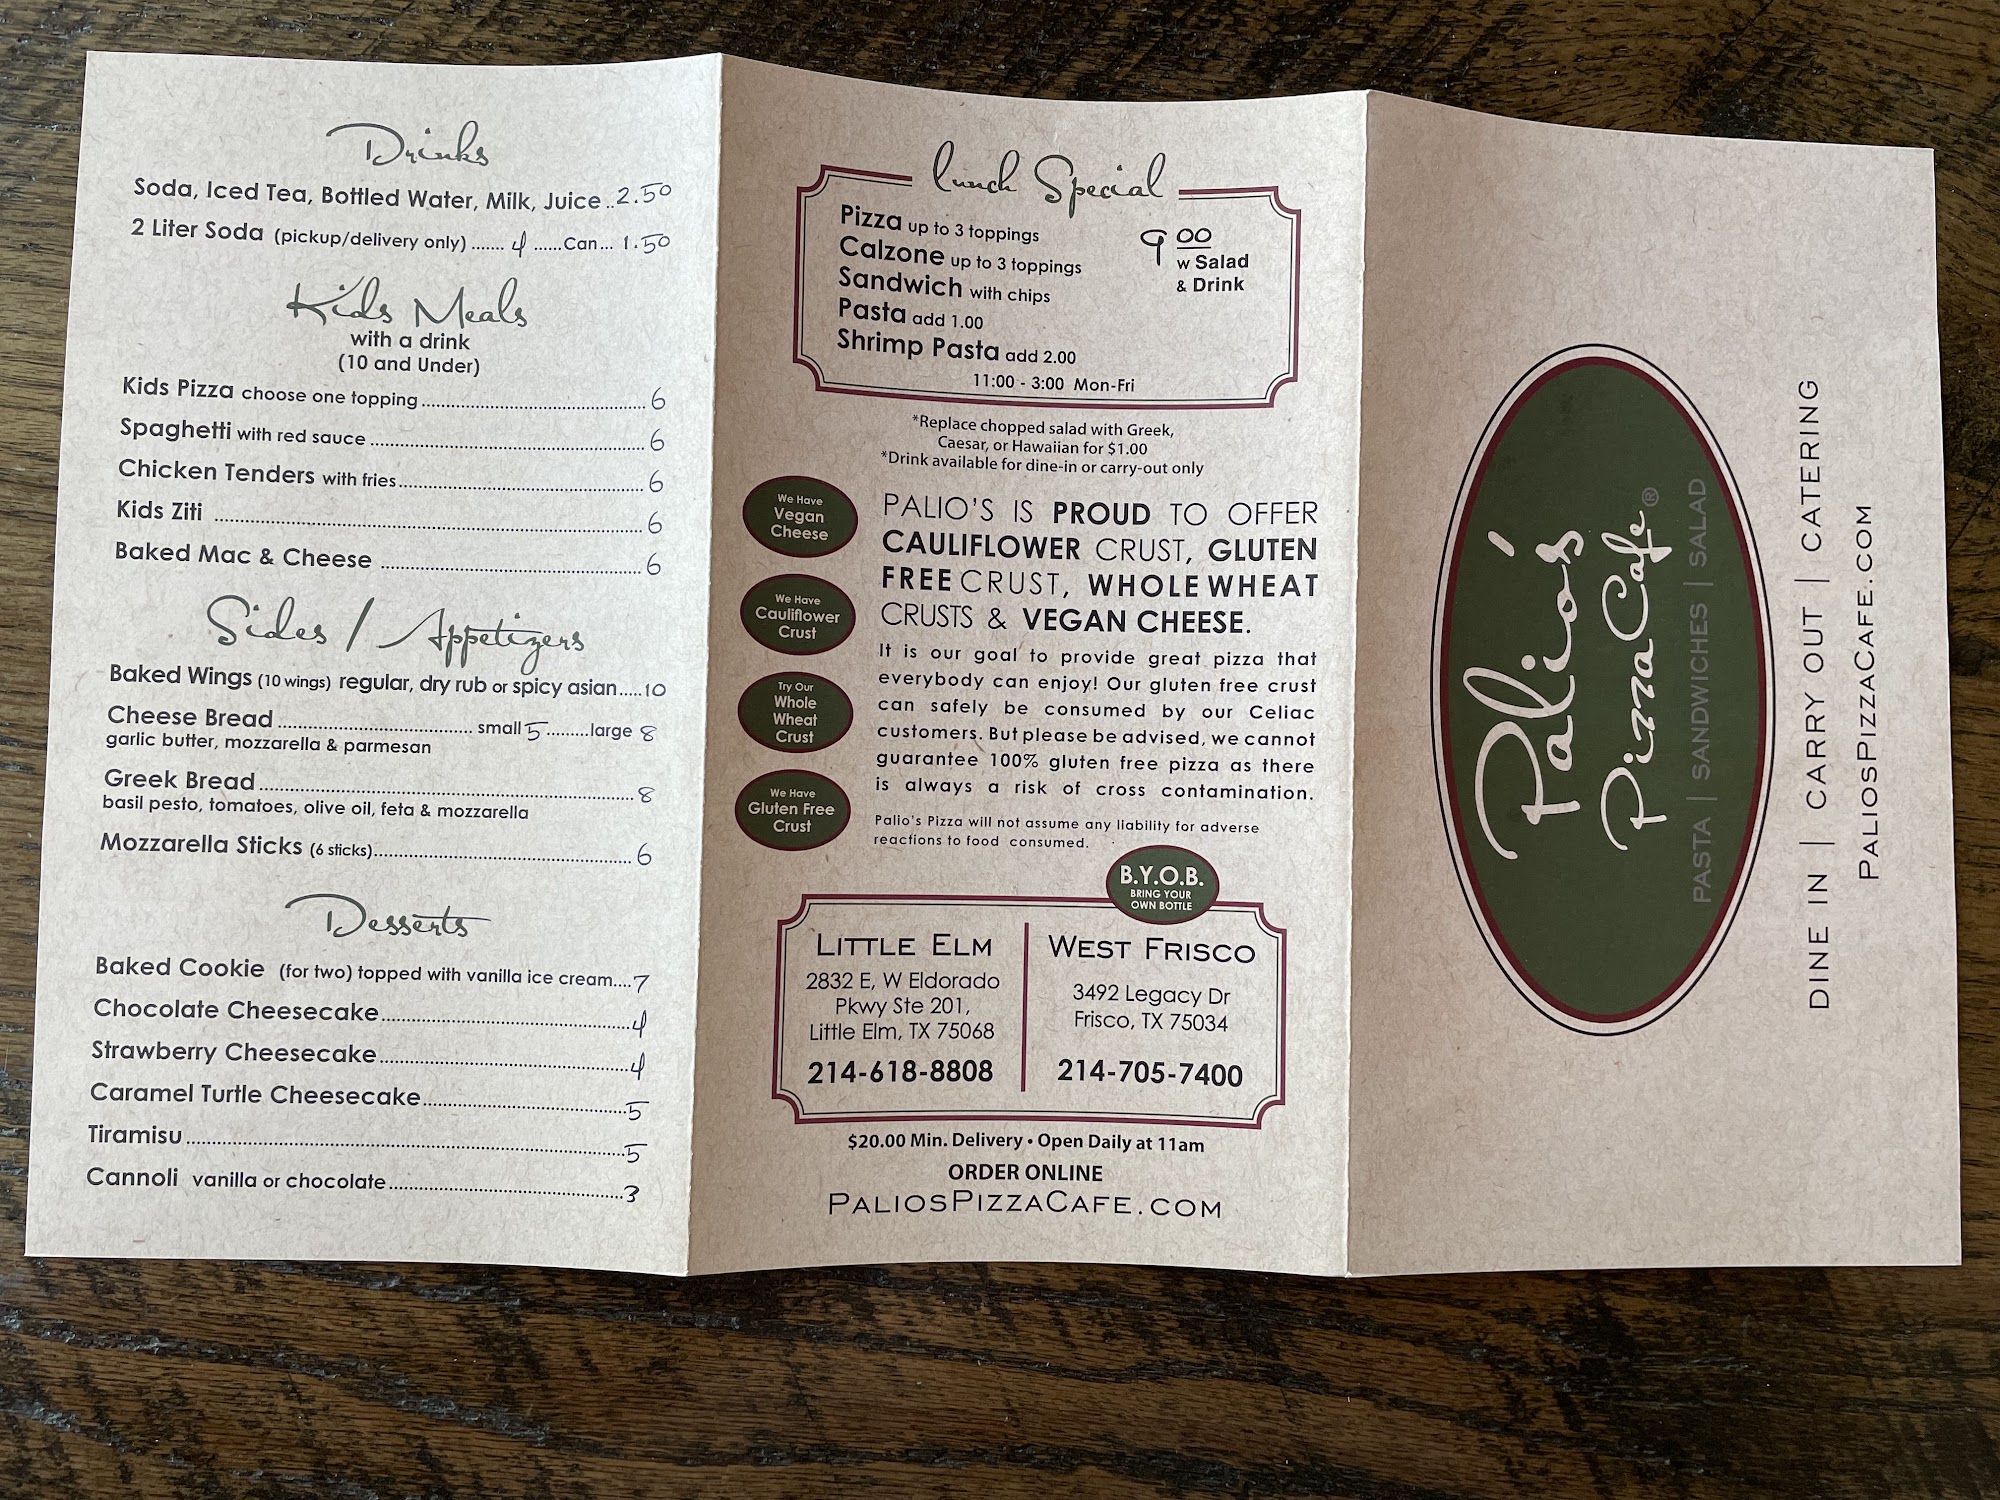 Drinks
Soda, Iced Tea, Bottled Water, Milk, Juice ..2.50
2 Liter Soda (pickup/delivery only) ....... 4 ......Can... 1.50
Kids Meals
with a drink
(10 and Under)
Kids Pizza choose one topping ........ 6
Spaghetti with red sauce ........ 6
Chicken Tenders with fries........ 6
Kids Ziti ........ 6
Baked Mac & Cheese ........ 6
Sides / Appetizers
Baked Wings (10 wings) regular, dry rub or spicy asian.....10
Cheese Bread ........ small 5.........large 8
garlic butter, mozzarella & parmesan
Greek Bread ........ 8
basil pesto, tomatoes, olive oil, feta & mozzarella
Mozzarella Sticks (6 sticks)........ 6
Desserts
Baked Cookie (for two) topped with vanilla ice cream....7
Chocolate Cheesecake........4
Strawberry Cheesecake........4
Caramel Turtle Cheesecake........5
Tiramisu ........5
Cannoli vanilla or chocolate........3
Lunch Special
Pizza up to 3 toppings
Calzone up to 3 toppings
Sandwich with chips
Pasta add 1.00
Shrimp Pasta add 2.00
9 00
w Salad
& Drink
11:00 - 3:00 Mon-Fri
*Replace chopped salad with Greek,
Caesar, or Hawaiian for $1.00
*Drink available for dine-in or carry-out only
We Have
Vegan
Cheese
We Have
Cauliflower
Crust
Try Our
Whole
Wheat
Crust
We Have
Gluten Free
Crust
PALIO'S IS PROUD TO OFFER
CAULIFLOWER CRUST, GLUTEN
FREE CRUST, WHOLE WHEAT
CRUSTS & VEGAN CHEESE.
It is our goal to provide great pizza that
everybody can enjoy! Our gluten free crust
can safely be consumed by our Celiac
customers. But please be advised, we cannot
guarantee 100% gluten free pizza as there
is always a risk of cross contamination.
Palio's Pizza will not assume any liability for adverse
reactions to food consumed.
B.Y.O.B.
BRING YOUR
OWN BOTTLE
LITTLE ELM
2832 E, W Eldorado
Pkwy Ste 201,
Little Elm, TX 75068
214-618-8808
WEST FRISCO
3492 Legacy Dr
Frisco, TX 75034
214-705-7400
$20.00 Min. Delivery • Open Daily at 11am
ORDER ONLINE
PALIOSPIZZACAFE.COM
Palio's
Pizza Cafe®
PASTA | SANDWICHES | SALAD
DINE IN | CARRY OUT | CATERING
PALIOSPIZZACAFE.COM